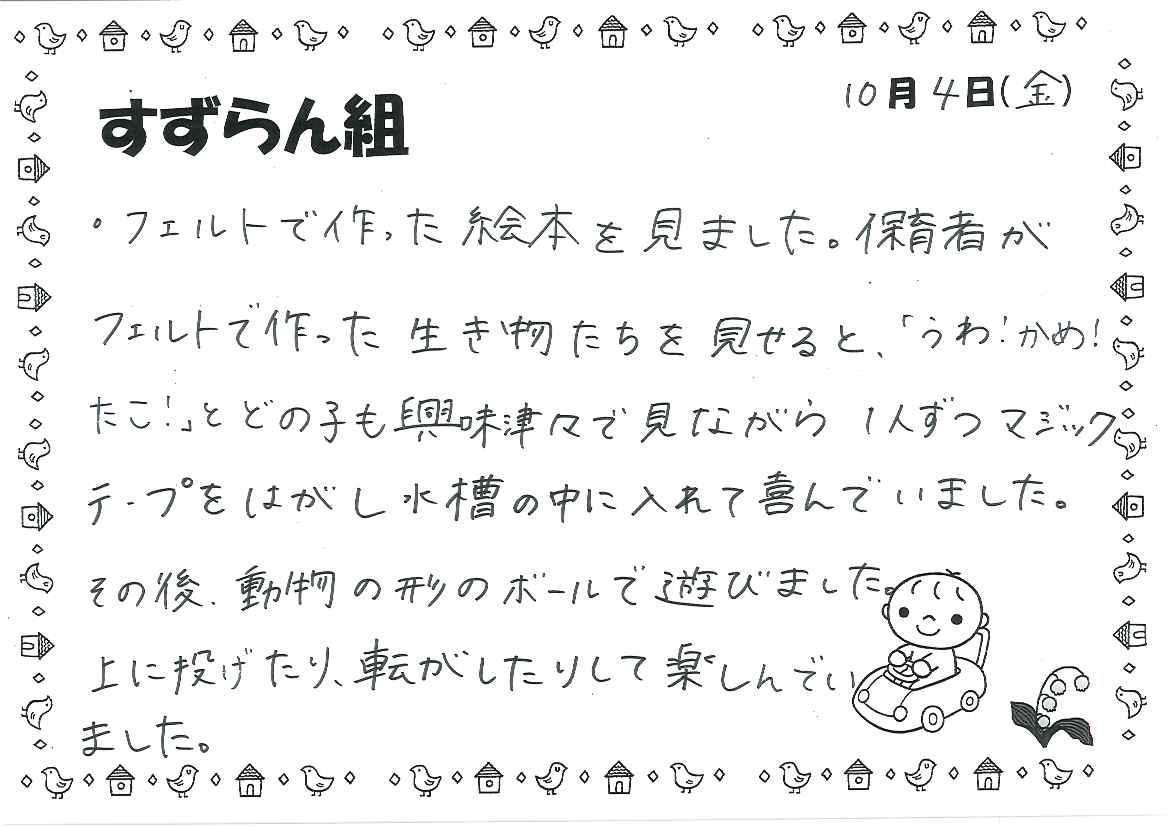 すずらん組
10月4日(金)
・フェルトで作った絵本を見ました。保育者が
フェルトで作った生き物たちを見せると、「うわ!かめ!
たこ!」とどの子も興味津々で見ながら 1人ずつマジック
テープをはがし水槽の中に入れて喜んでいました。
その後、動物の形のボールで遊びました。
上に投げたり、転がしたりして楽しんでい
ました。